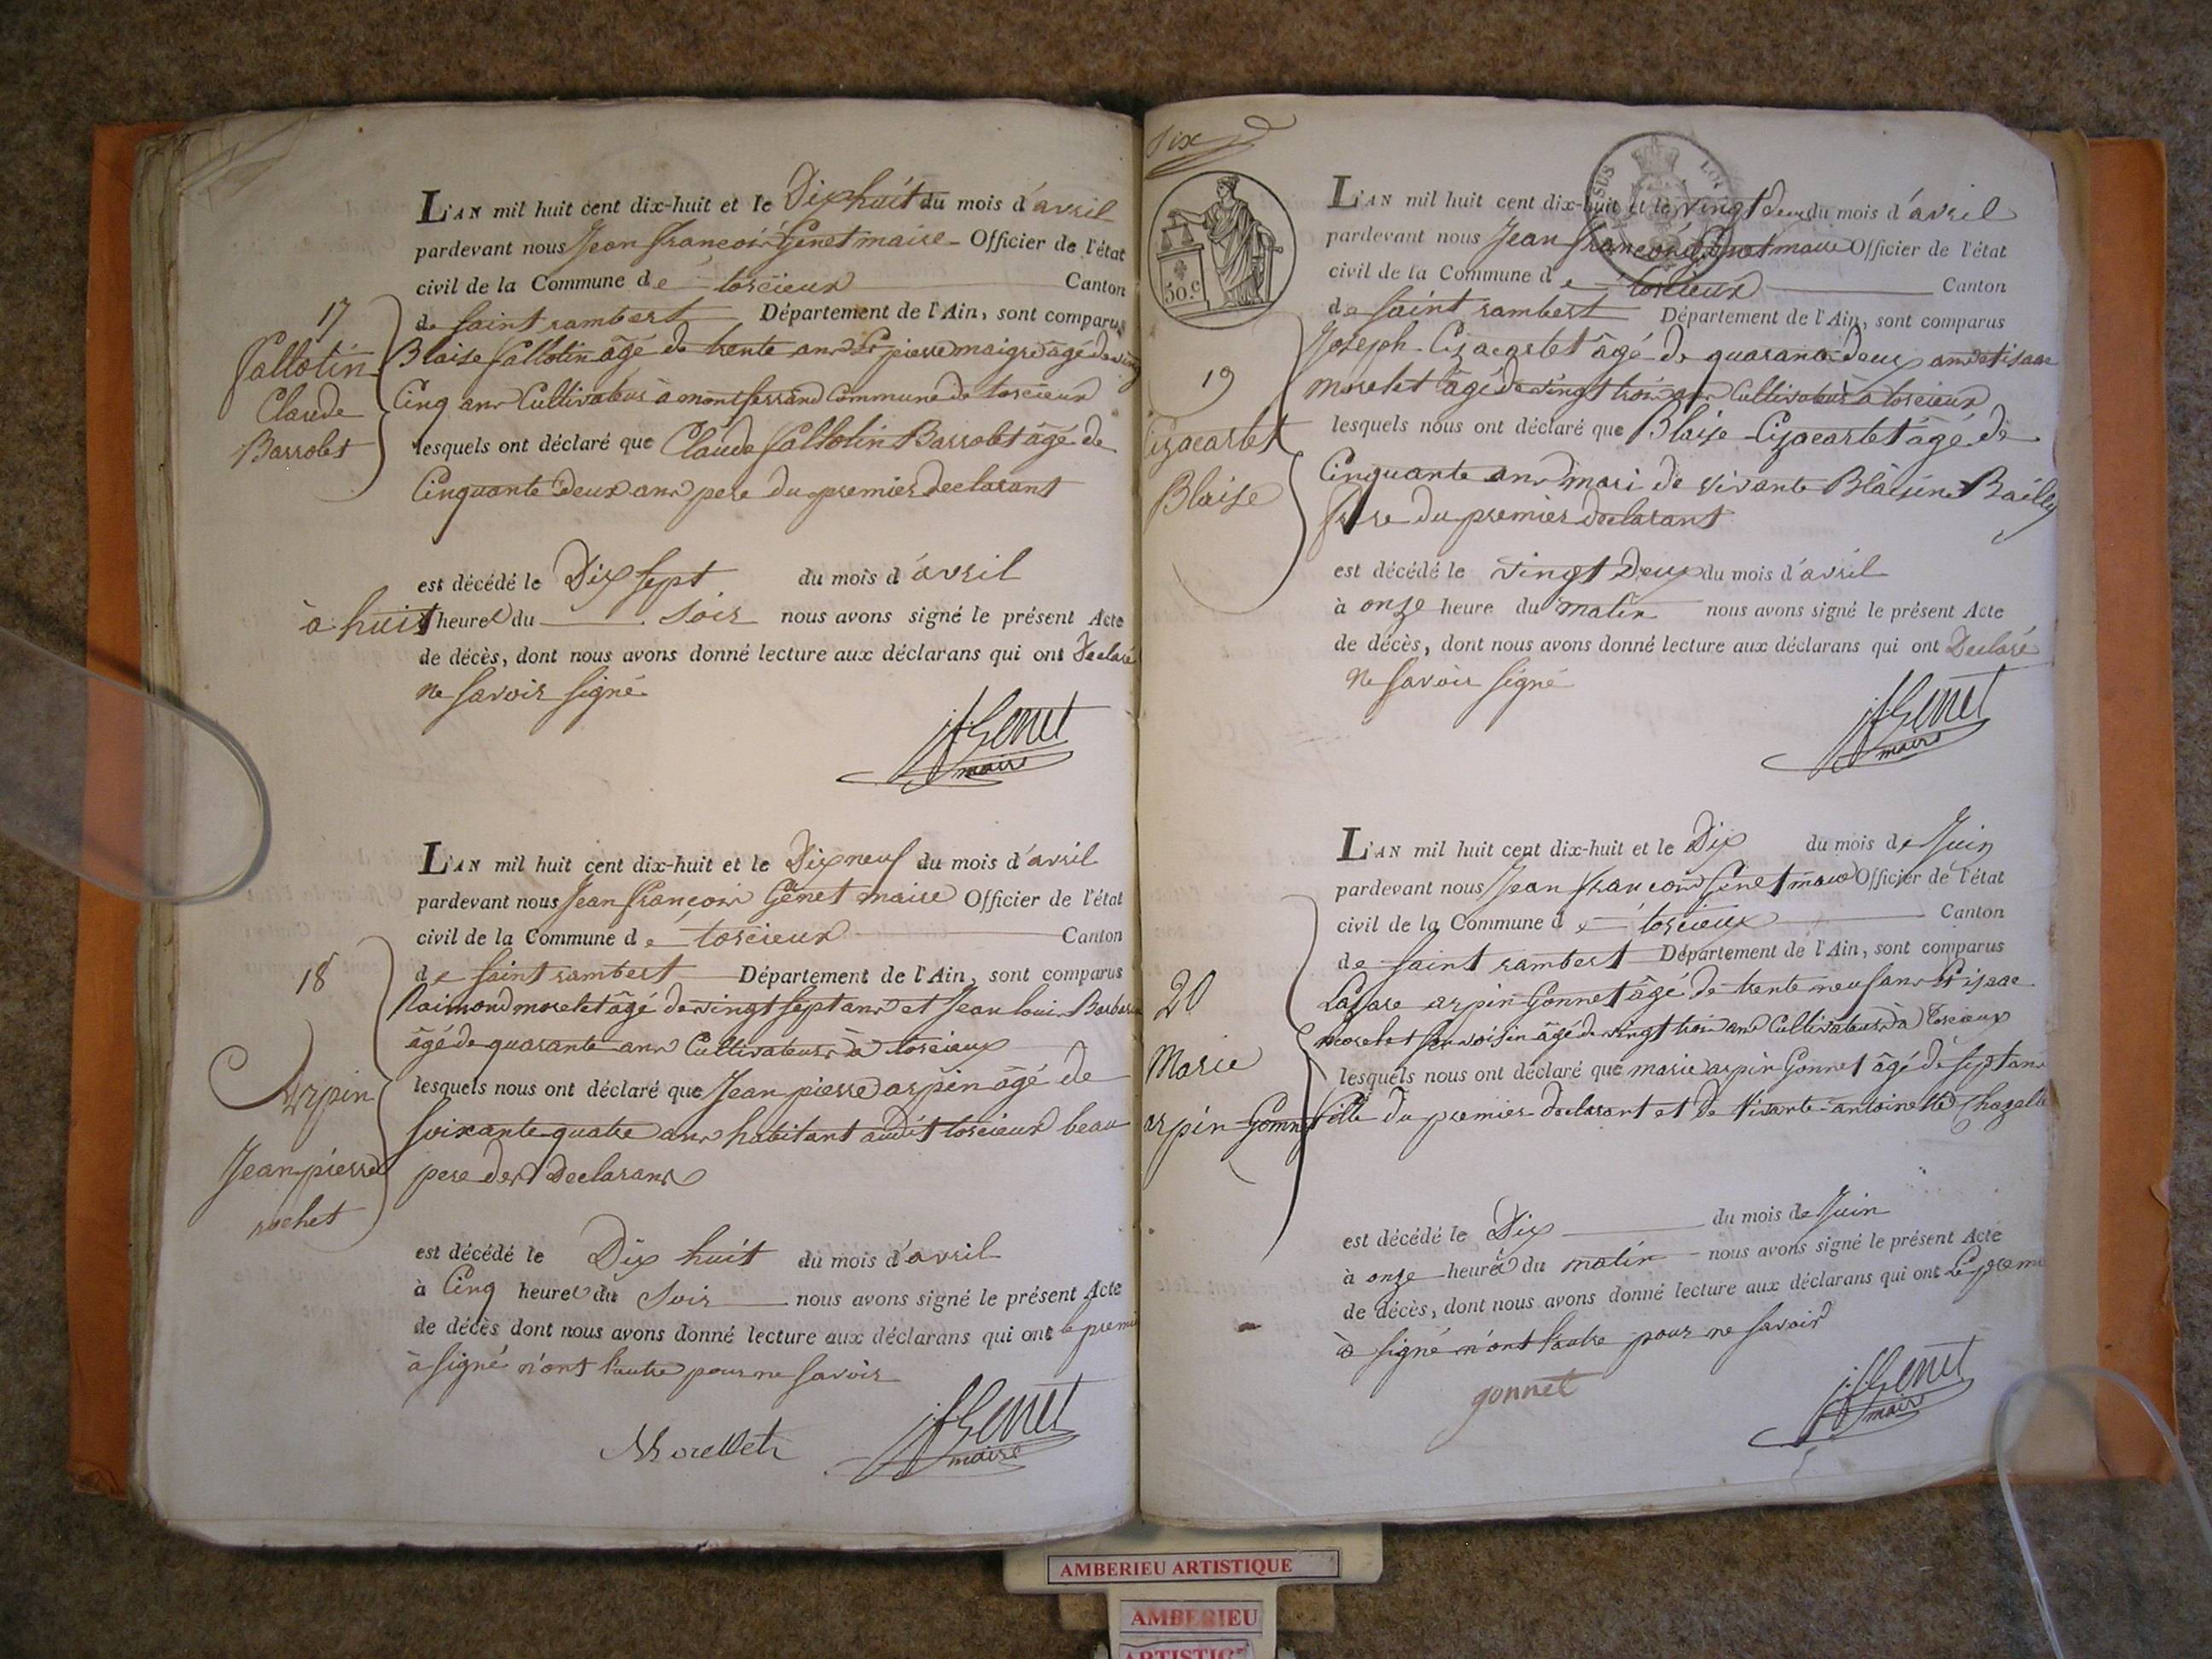 L'AN mil huit cent dix-huit et le Dix huit du mois d'avril
pardevant nous Jean françois Genet maire Officier de l'état
civil de la Commune de torcieux Canton
de saint rambert Département de l'Ain, sont comparus
17
Callotin
Claude
Barrolet
Blaise Callotin âgé de trente ans Et pierre maigre âgé de vingt
Cinq ans Cultivateurs à montferrand Commune de torcieux
lesquels ont déclaré que Claude Callotin Barrolet âgé de
Cinquante Deux ans pere du premier declarant
est décédé le Dix sept du mois d'avril
à huit heures du soir nous avons signé le présent Acte
de décès, dont nous avons donné lecture aux déclarans qui ont Declaré
ne savoir signé
jf Genet
maire
L'AN mil huit cent dix-huit et le Dix neuf du mois d'avril
pardevant nous Jean françois Genet maire Officier de l'état
civil de la Commune de torcieux Canton
de saint rambert Département de l'Ain, sont comparus
18
Arpin
Jean pierre
rochet
Raimond morelet âgé de vingt sept ans et Jean louis
âgé de quarante ans Cultivateurs à torcieux
lesquels nous ont déclaré que Jean pierre arpin âgé de
soixante quatre ans habitant audit torcieux beau
pere des Declarans
est décédé le Dix huit du mois d'avril
à Cinq heures du soir nous avons signé le présent Acte
de décès dont nous avons donné lecture aux déclarans qui ont le premier
à signé n'ont l'autre pour ne savoir
Morellet
jf Genet
maire
six
50.c
L'AN mil huit cent dix-huit et le vingt deux du mois d'avril
pardevant nous Jean françois Genet maire Officier de l'état
civil de la Commune de torcieux Canton
de saint rambert Département de l'Ain, sont comparus
19
Cizacarlet
Blaise
Joseph Cizacarlet âgé de quarante deux ans et isaac
morelet âgé de vingt trois ans Cultivateurs à torcieux
lesquels nous ont déclaré que Blaise Cizacarlet âgé de
Cinquante ans mari de vivante Blaisine Bailly
frere du premier declarant
est décédé le vingt Deux du mois d'avril
à onze heure du matin nous avons signé le présent Acte
de décès, dont nous avons donné lecture aux déclarans qui ont Declaré
ne savoir signé
jf Genet
maire
L'AN mil huit cent dix-huit et le Dix du mois de Juin
pardevant nous Jean françois Genet maire Officier de l'état
civil de la Commune de torcieux Canton
de saint rambert Département de l'Ain, sont comparus
20
Marie
arpin Gonnet
Lazare arpin Gonnet âgé de trente neuf ans Et isaac
morelet son voisin âgé de vingt trois ans Cultivateurs à Torcieux
lesquels nous ont déclaré que marie arpin Gonnet âgé de sept ans
fille du premier declarant et de Vivante antoinette Chazelle
est décédé le Dix du mois de Juin
à onze heures du matin nous avons signé le présent Acte
de décès, dont nous avons donné lecture aux déclarans qui ont Le premier
à signé n'ont l'autre pour ne savoir
gonnet
jf Genet
maire
AMBERIEU ARTISTIQUE
AMBERIEU